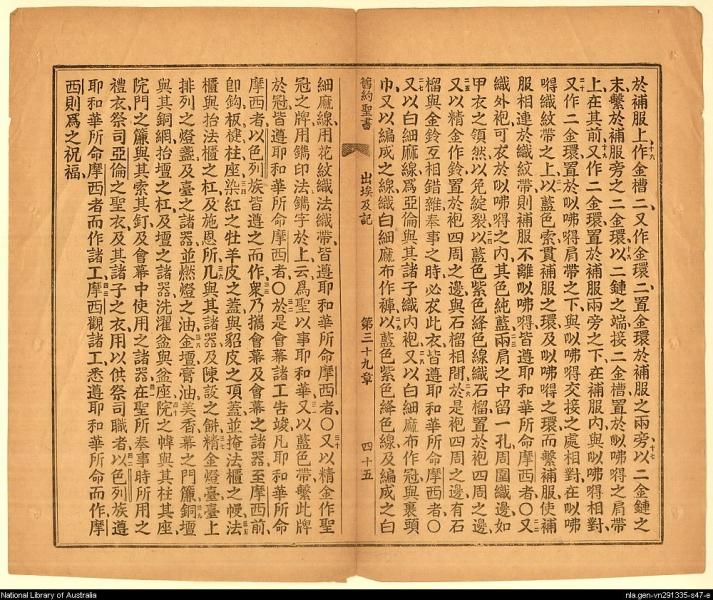 於補服上作金槽二又作金環二置金環於補服之兩旁以二金鏈之
末繫於補服旁之二金環以二鏈之端接二金槽置於㕥咈得之肩帶
上在其前又作二金環置於補服兩旁之下在補服內與㕥咈得相對
又作二金環置於㕥咈得肩帶之下與㕥咈得交接之處相對在㕥咈
得織紋帶之上以藍色索貫補服之環及㕥咈得之環而繫補服使補
服相連於織紋帶則補服不離㕥咈得皆遵耶和華所命摩西者〇又
織外袍可衣於㕥咈得之內其色純藍兩肩之中留一孔周圍織邊如
甲衣之領然以免綻裂以藍色紫色絳色線織石榴置於袍四周之邊
又以精金作鈴置於袍四周之邊與石榴相間於是袍四周之邊有石
榴與金鈴互相錯雜奉事之時必衣此衣皆遵耶和華所命摩西者〇
又以白細麻線爲亞倫與其諸子織內袍又以白細麻布作冠與裹頭
巾又以編成之線織白細麻布作褲以藍色紫色絳色線及編成之白
舊約聖書
出埃及記
第三十九章
四十五
細麻線用花紋織法織帶皆遵耶和華所命摩西者〇又以精金作聖
冠之牌用鐫印法鐫字於上云爲聖以事耶和華又以藍色帶繫此牌
於冠皆遵耶和華所命摩西者〇於是會幕諸工告竣凡耶和華所命
摩西者以色列族皆遵之而作衆乃攜會幕及會幕之諸器至摩西前
卽鉤板楗柱座染紅之牡羊皮之蓋與貂皮之頂蓋並掩法櫃之幔法
櫃與抬法櫃之杠及施恩所几與其諸器及陳設之餅精金燈臺臺上
排列之燈盞及臺之諸器並燃燈之油金壇膏油美香幕之門簾銅壇
與其銅網抬壇之杠及壇之諸器洗濯盆與盆座院之幃與其柱其座
院門之簾與其索其釘及會幕中使用之諸器在聖所奉事時所用之
禮衣祭司亞倫之聖衣及其諸子之衣用以供祭司職者以色列族遵
耶和華所命摩西者而作諸工摩西觀諸工悉遵耶和華所命而作摩
西則爲之祝福
National Library of Australia
nla.gen-vn291335-s47-e